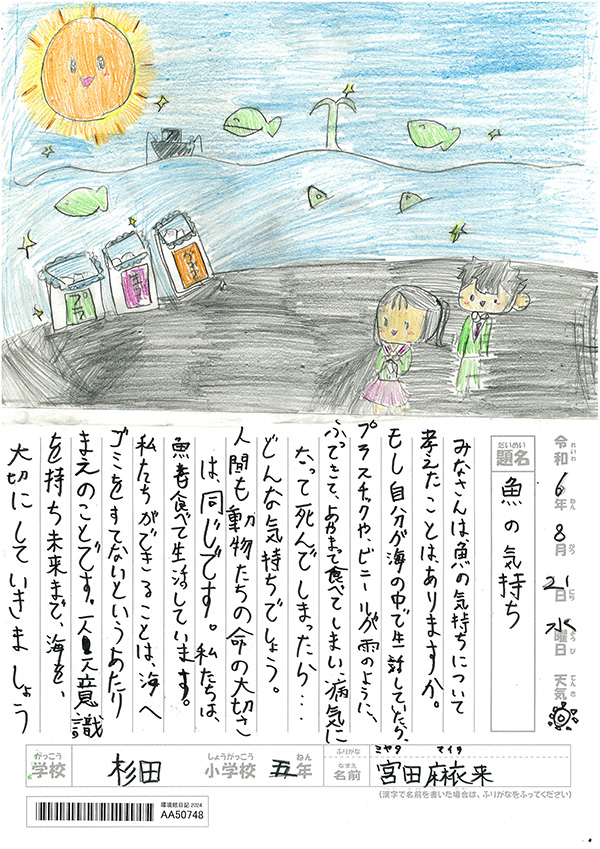 プラ
令和6年8月21日水曜日天気
れいわ ねん がつ にち ようび てんき
題名
だいめい
魚の気持ち
みなさんは魚の気持ちについて
考えたことはありますか。
もし自分が海の中で生活していたら、
プラスチックや、ビニールが雨のように、
ふってきて、あやまって食べてしまい、病気に
なって死んでしまったら・・・
どんな気持ちでしょう。
人間も動物たちの命の大切さ
は、同じです。私たちは、
魚を食べて生活しています。
私たちができることは、海へ
ゴミをすてないというあたり
まえのことです。一人一人意識
を持ち未来まで、海を、
大切にしていきましょう
がっこう しょうがっこう ねん
学校 杉田 小学校 五年
ふりがな ミヤタ マイク
なまえ
名前 宮田麻衣来
(漢字で名前を書いた場合は、ふりがなをふってください)
環境絵日記 2024
AA50748